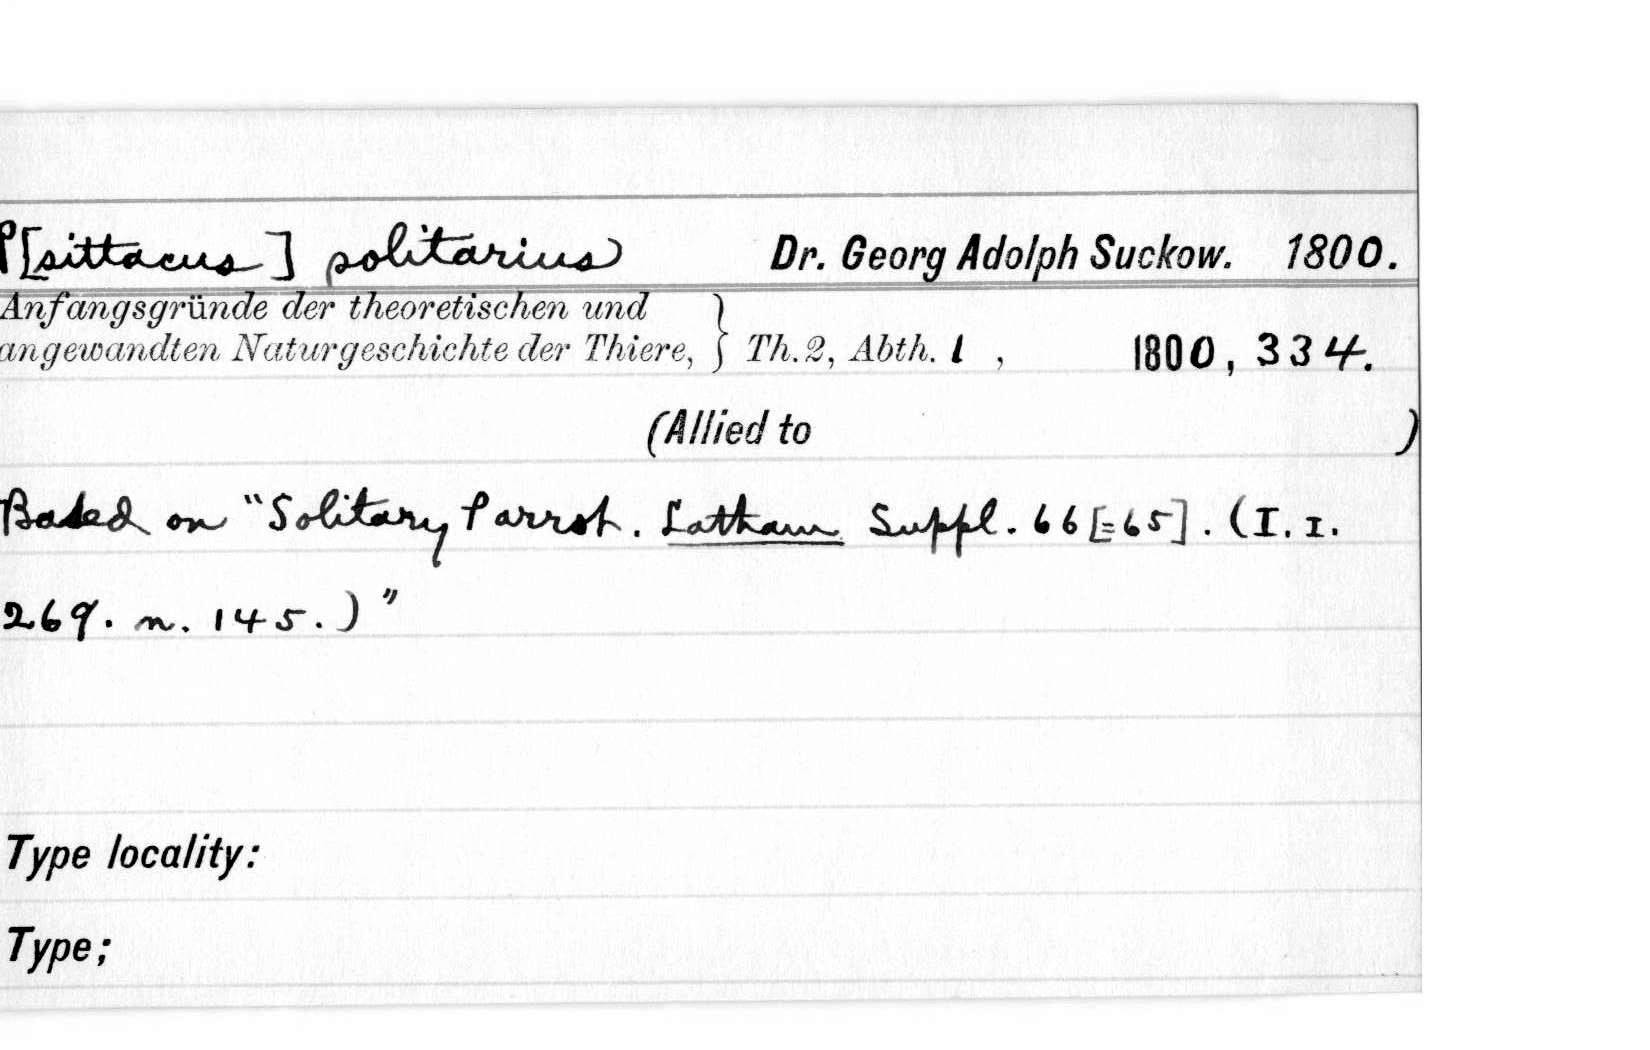 P[sittacus] solitarius Dr. Georg Adolph Suckow. 1800.
Anfangsgründe der theoretischen und
angewandten Naturgeschichte der Thiere, } Th. 2, Abth. 1 , 1800, 334.
(Allied to )
Based on "Solitary Parrot. Latham Suppl. 66 [=65]. (I. I.
269. n. 145.)"
Type locality:
Type;